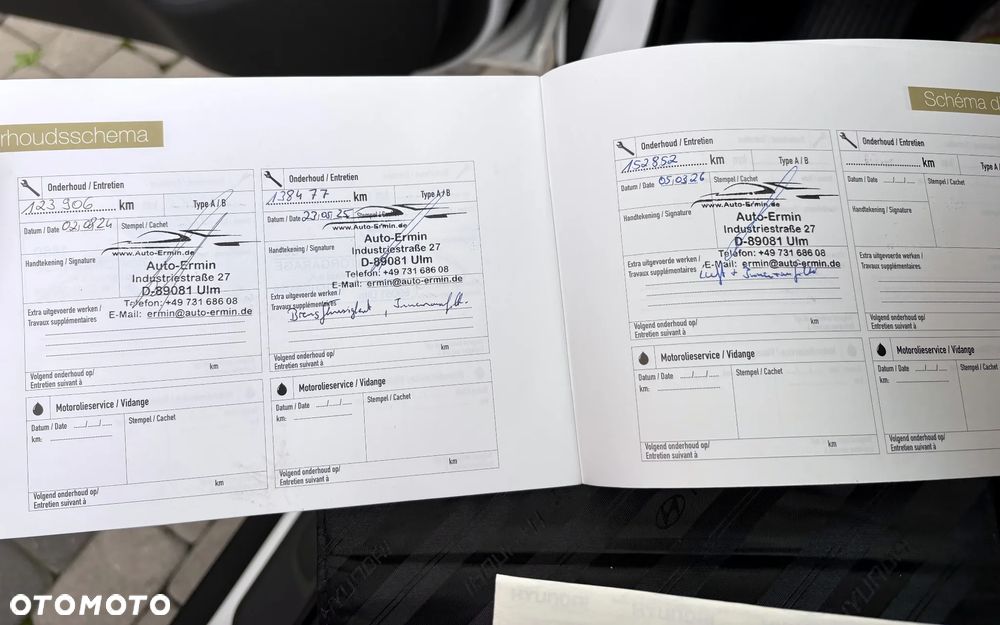 rhoudsschema
Onderhoud / Entretien
123 906 km
Type A / B
Datum / Date 02.0824
Stempel / Cachet
www.Auto-Ermin.de
Handtekening / Signature
Auto-Ermin
Industriestraße 27
D-89081 Ulm
Telefon: +49 731 686 08
E-Mail: ermin@auto-ermin.de
Extra uitgevoerde werken /
Travaux supplémentaires
Volgend onderhoud op/
Entretien suivant à
km
Motorolieservice / Vidange
Datum / Date
Stempel / Cachet
km:
Volgend onderhoud op/
Entretien suivant à
km
Onderhoud / Entretien
138477 km
Type A / B
Datum / Date 23.05.25
Stempel / Cachet
www.Auto-Ermin.de
Handtekening / Signature
Auto-Ermin
Industriestraße 27
D-89081 Ulm
Telefon: +49 731 686 08
E-Mail: ermin@auto-ermin.de
Extra uitgevoerde werken /
Travaux supplémentaires
Volgend onderhoud op/
Entretien suivant à
km
Motorolieservice / Vidange
Datum / Date
Stempel / Cachet
km:
Volgend onderhoud op/
Entretien suivant à
km
Schéma d
Onderhoud / Entretien
152852 km
Type A / B
Datum / Date 05.03.26
Stempel / Cachet
www.Auto-Ermin.de
Handtekening / Signature
Auto-Ermin
Industriestraße 27
D-89081 Ulm
Telefon: +49 731 686 08
E-Mail: ermin@auto-ermin.de
Extra uitgevoerde werken /
Travaux supplémentaires
Luft +
Volgend onderhoud op/
Entretien suivant à
km
Motorolieservice / Vidange
Datum / Date
Stempel / Cachet
km:
Volgend onderhoud op/
Entretien suivant à
km
Onderhoud / Entretien
km
Type A
Datum / Date
Stempel / Cachet
Handtekening / Signature
Extra uitgevoerde werken /
Travaux supplémentaires
Volgend onderhoud op/
Entretien suivant à
Motorolieservice / Vidange
Datum / Date
Stempel / Cach
km:
Volgend onderhoud op/
Entretien suivant à
HYUNDAI
HYUNDAI
HYUNDAI
OTOMOTO